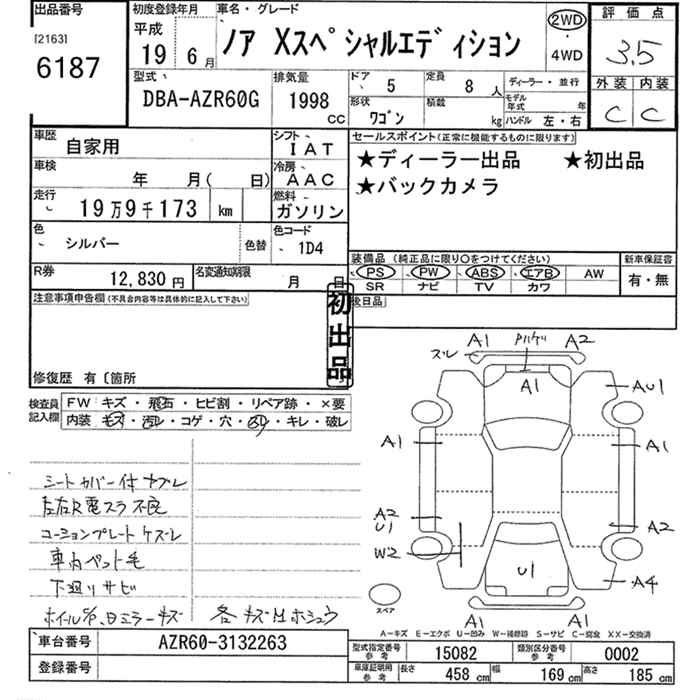 出品番号 初度登録年月 車名・グレード 2WD 評価点
[2163] 平成
6187 19年 6月 ノア Xスペシャルエディション 4WD 3.5
型式 排気量 ドア 5 定員 8人 ディーラー・並行 外装 内装
DBA-AZR60G 1998cc 形状 ワゴン 積載 kg モデル年式 年 ハンドル 左・右 C C
車歴 自家用 シフト IAT セールスポイント(正常に機能するものに限ります)
車検 年 月( 日) 冷房 AAC ★ディーラー出品 ★初出品
走行 19万9千173 km 燃料 ガソリン ★バックカメラ
色 シルバー 色替 色コード 1D4
装備品(純正品に限り○をつけてください) 新車保証書
R券 12,830円 名変通知期限 月 日 PS PW ABS エアB AW 有・無
SR ナビ TV カワ
注意事項申告欄(不具合内容等は具体的に記入して下さい) 初出品 後日品
修復歴 有〔箇所
検査員記入欄 FW キズ・飛石・ヒビ割・リペア跡・×要
内装 キズ・汚れ・コゲ・穴・スリ・キレ・破レ
スレ A1 Pハゲリ A2
A1
AU1
A1 A1
A2
U1 A2
W2
U1 A4
スペア A1 A1
シートカバー付 ヤブレ
左右R電スラ不良
コーションプレートケズレ
車内ペット毛
下廻りサビ
各キズ凹ホシュウ
A-キズ E-エクボ U-凹み W-補修跡 S-サビ C-腐食 XX-交換済
車台番号 AZR60-3132263 型式指定番号 参考 15082 類別区分番号 参考 0002
登録番号 車庫証明用 参考 長さ 458cm 幅 169cm 高さ 185cm